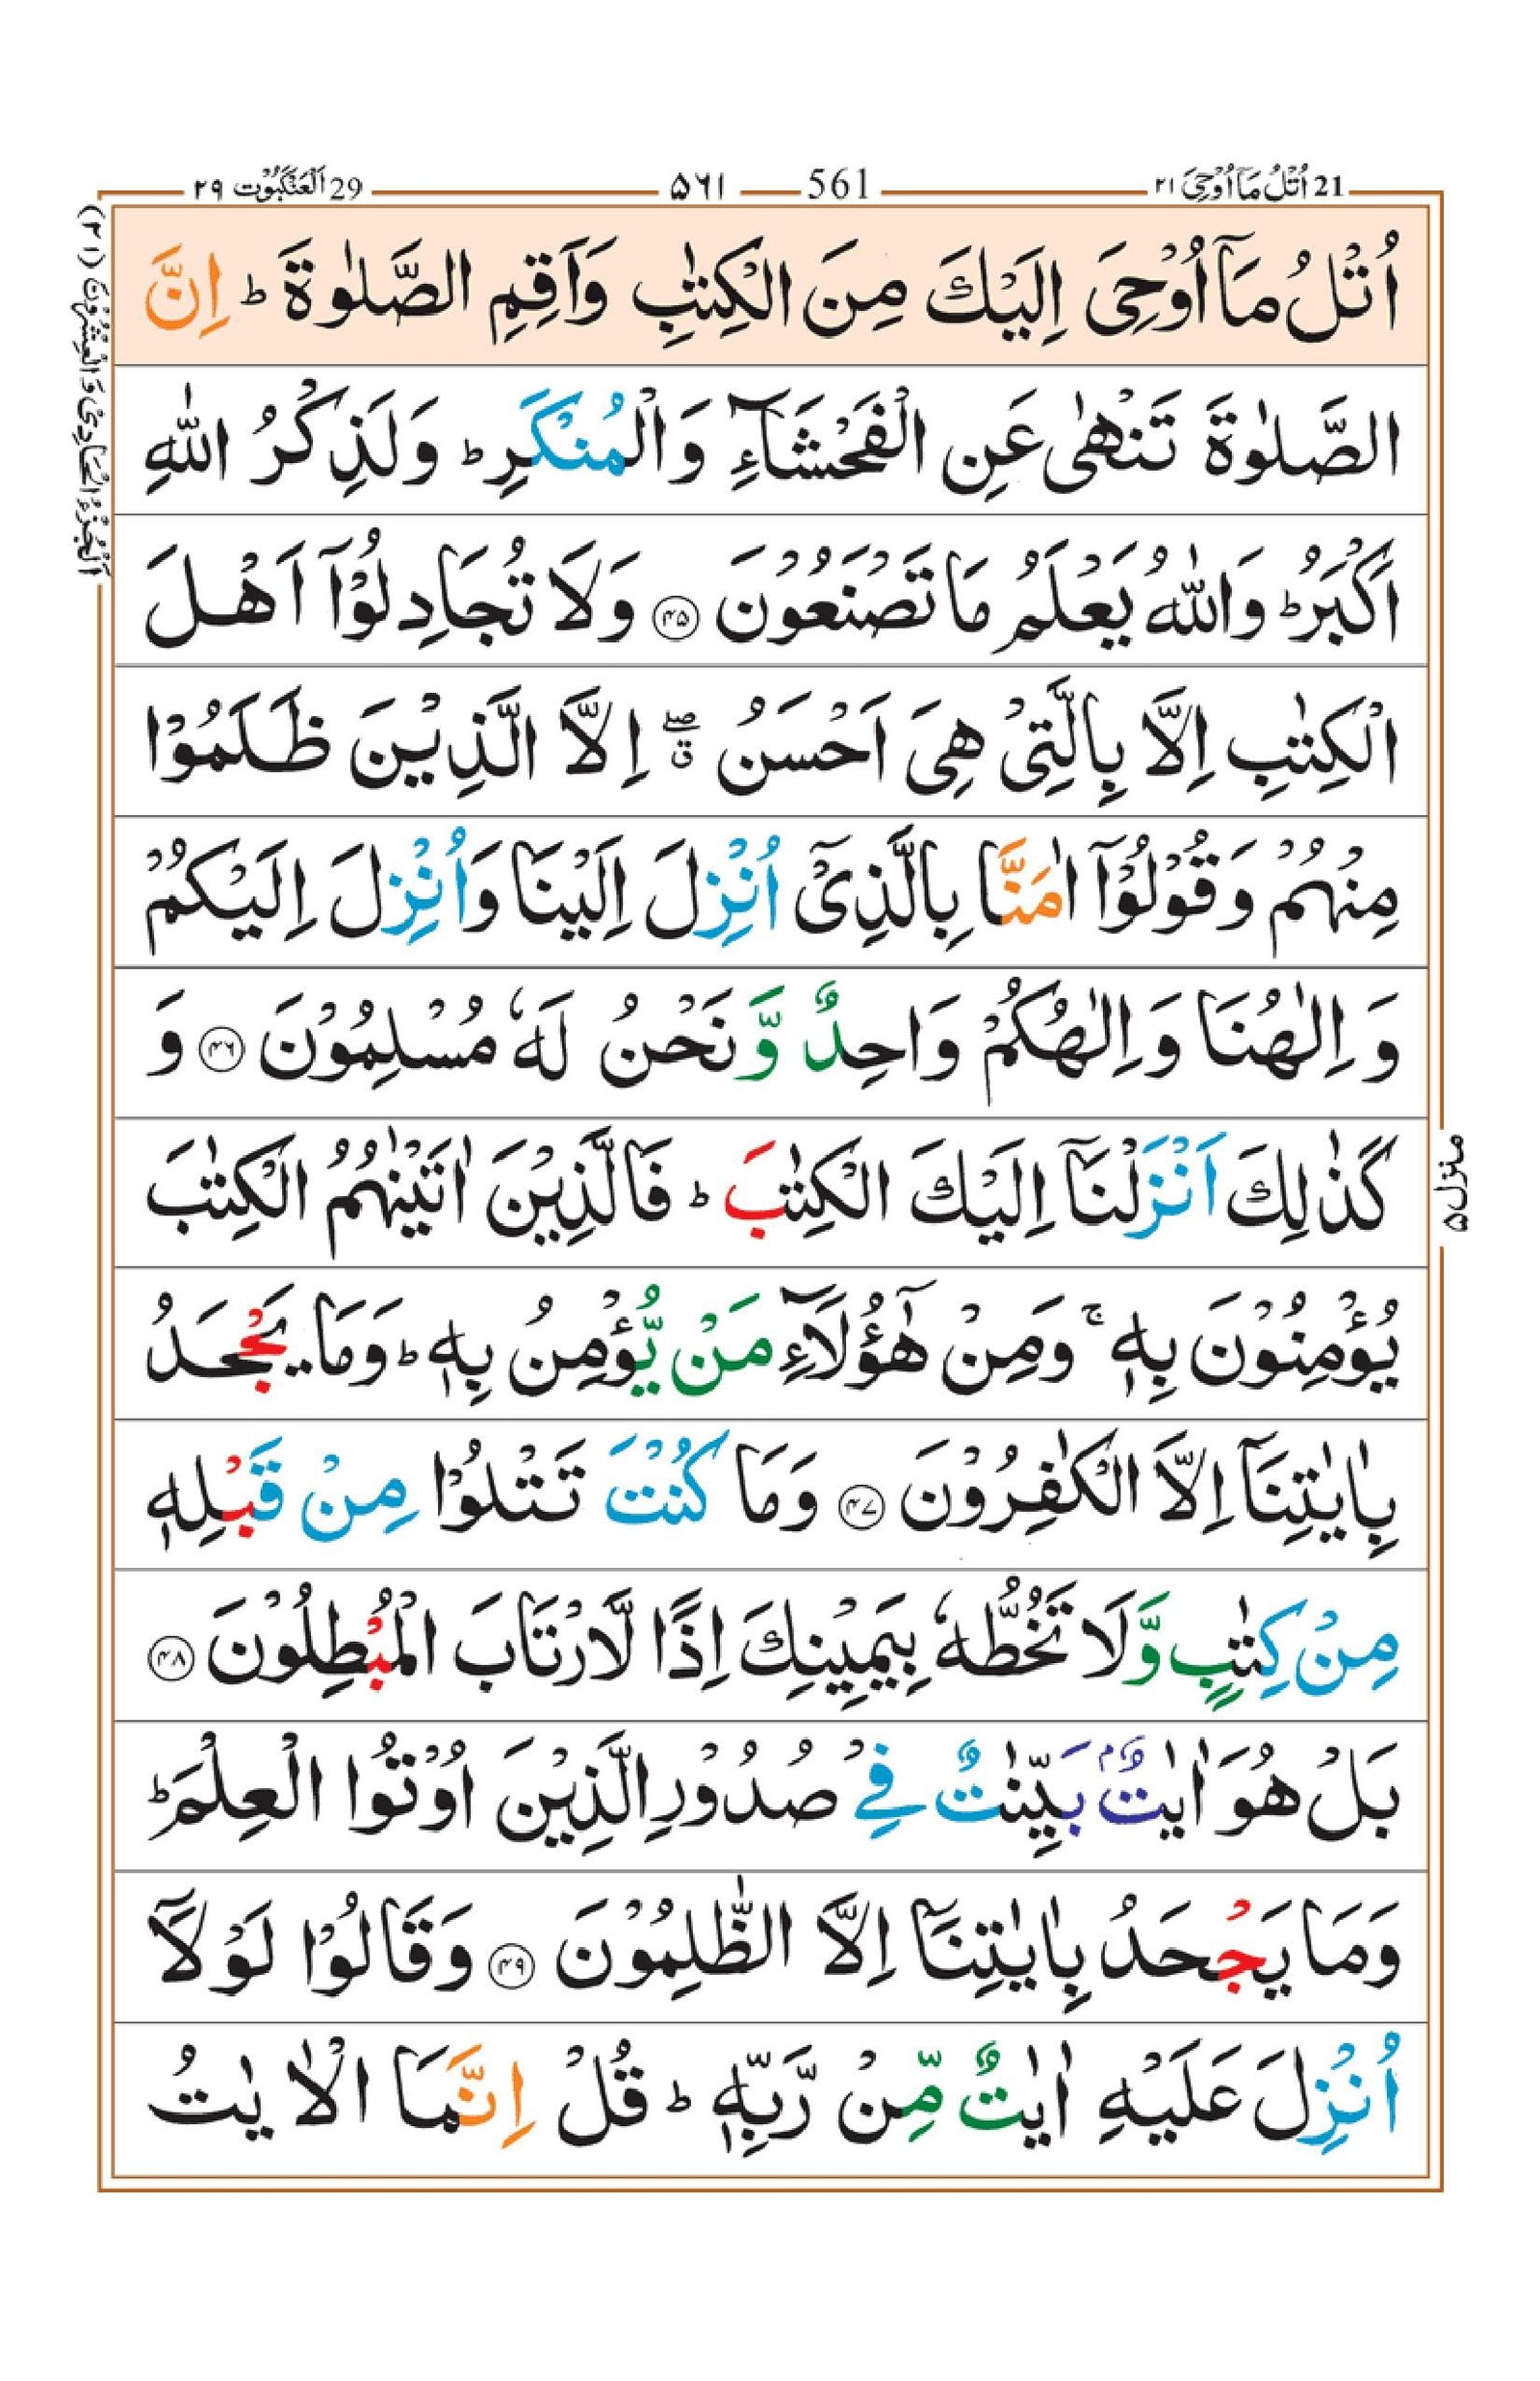 21 اُتْلُ مَآ اُوْحِیَ ٢١
561 ٥٦١
29 اَلْعَنْكَبُوْت ٢٩
اُتْلُ مَاۤ اُوْحِیَ اِلَیْكَ مِنَ الْكِتٰبِ وَاَقِمِ الصَّلٰوةَ ؕ اِنَّ
الصَّلٰوةَ تَنْهٰی عَنِ الْفَحْشَآءِ وَالْمُنْكَرِ ؕ وَلَذِكْرُ اللّٰهِ
اَكْبَرُ ؕ وَاللّٰهُ یَعْلَمُ مَا تَصْنَعُوْنَ ﴿۴۵﴾ وَلَا تُجَادِلُوْۤا اَهْلَ
الْكِتٰبِ اِلَّا بِالَّتِیْ هِیَ اَحْسَنُ ۖۗ اِلَّا الَّذِیْنَ ظَلَمُوْا
مِنْهُمْ وَقُوْلُوْۤا اٰمَنَّا بِالَّذِیْۤ اُنْزِلَ اِلَیْنَا وَاُنْزِلَ اِلَیْكُمْ
وَ اِلٰهُنَا وَ اِلٰهُكُمْ وَاحِدٌ وَّ نَحْنُ لَهٗ مُسْلِمُوْنَ ﴿۴۶﴾ وَ
كَذٰلِكَ اَنْزَلْنَاۤ اِلَیْكَ الْكِتٰبَ ؕ فَالَّذِیْنَ اٰتَیْنٰهُمُ الْكِتٰبَ
یُؤْمِنُوْنَ بِهٖ ۚ وَمِنْ هٰۤؤُلَآءِ مَنْ یُّؤْمِنُ بِهٖ ؕ وَمَا یَجْحَدُ
بِاٰیٰتِنَاۤ اِلَّا الْكٰفِرُوْنَ ﴿۴۷﴾ وَمَا كُنْتَ تَتْلُوْا مِنْ قَبْلِهٖ
مِنْ كِتٰبٍ وَّلَا تَخُطُّهٗ بِیَمِیْنِكَ اِذًا لَّارْتَابَ الْمُبْطِلُوْنَ ﴿۴۸﴾
بَلْ هُوَ اٰیٰتٌۢ بَیِّنٰتٌ فِیْ صُدُوْرِ الَّذِیْنَ اُوْتُوا الْعِلْمَ ؕ
وَمَا یَجْحَدُ بِاٰیٰتِنَاۤ اِلَّا الظّٰلِمُوْنَ ﴿۴۹﴾ وَقَالُوْا لَوْلَاۤ
اُنْزِلَ عَلَیْهِ اٰیٰتٌ مِّنْ رَّبِّهٖ ؕ قُلْ اِنَّمَا الْاٰیٰتُ
منزل ۵
اَلْجُزْءُ الْحَادِیْ وَ الْعِشْرُوْنَ (٢١)